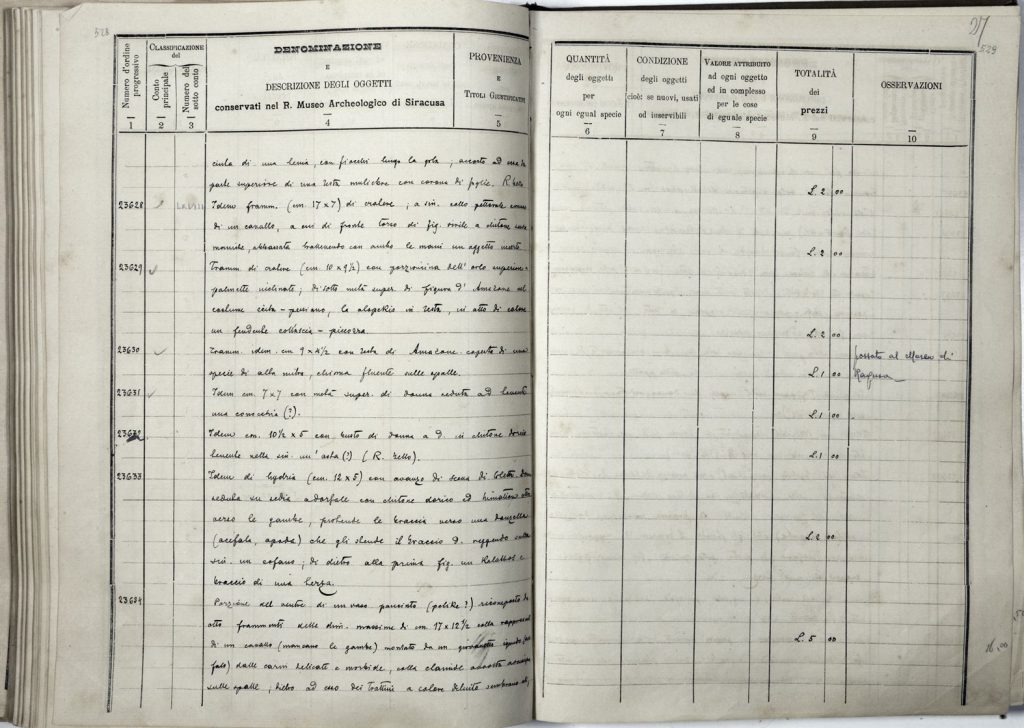 528
Numero d'ordine progressivo
CLASSIFICAZIONE del
Conto principale
Numero del sotto conto
DENOMINAZIONE
E
DESCRIZIONE DEGLI OGGETTI
conservati nel R. Museo Archeologico di Siracusa
PROVENIENZA
E
TITOLI GIUSTIFICATIVI
1 2 3 4 5
di una con fiocchi lungo la gola, ad una
parte superiore di una testa muliebre con corona di foglie. R. Zello
23628 Idem framm. (cm. 17 x 7) di cratere; a sin. collo pettorale
di un cavallo, a cui di fronte torso di fig. virile a chitone
con ambo le mani un oggetto
23629 Framm. di cratere (cm. 10 x 9 ½) con porzioncina dell' orlo superiore
palmette inclinate; di sotto metà super. di figura d' Amazone nel
costume scita-persiano, la alopekis in testa, in atto di calare
un fendente coll'ascia-picozza.
23630 Framm. idem. cm 9 x 4½ con testa di Amazone. coperta di una
specie di alta mitra, chioma fluente sulle spalle.
23631 Idem cm. 7 x 7 con metà super. di donna seduta ad
una (?).
23632 Idem cm. 10½ x 5 con busto di donna a D. in chitone dorico
tenente nella sin. un' asta (?) (R. Zello).
23633 Idem di hydria (cm. 12 x 5) con avanzo di scena di
seduta su sedia a dorsale con chitone dorico ed himation
verso le gambe, protende le braccia verso una donzella
(acefala, apoda) che gli stende il braccio D. reggendo sulla
sin. un cofano; di dietro alla prima fig. un Kalathos e
braccio di una terza.
23634 Porzione del ventre di un vaso panciuto (pelike?) ricomposto da
otto frammenti delle dim. massime di cm 17 x 12½ colla
di un cavallo (mancano le gambe) montato da un giovanetto ignudo
dalle carni delicate e morbide, colla clamide
sulle spalle; dietro ad esso dei trattini a colore diluito sembrano
37
529
QUANTITÀ
degli oggetti
per
ogni egual specie
CONDIZIONE
degli oggetti
cioè: se nuovi, usati
od inservibili
VALORE ATTRIBUITO
ad ogni oggetto
ed in complesso
per le cose
di eguale specie
TOTALITÀ
dei
prezzi
OSSERVAZIONI
6 7 8 9 10
L. 2 00
L. 2 00
L. 2 00
L. 1 00 passato al Museo di
Ragusa
L. 1 00
L. 1 00
L. 2 00
L. 5 00
16.00